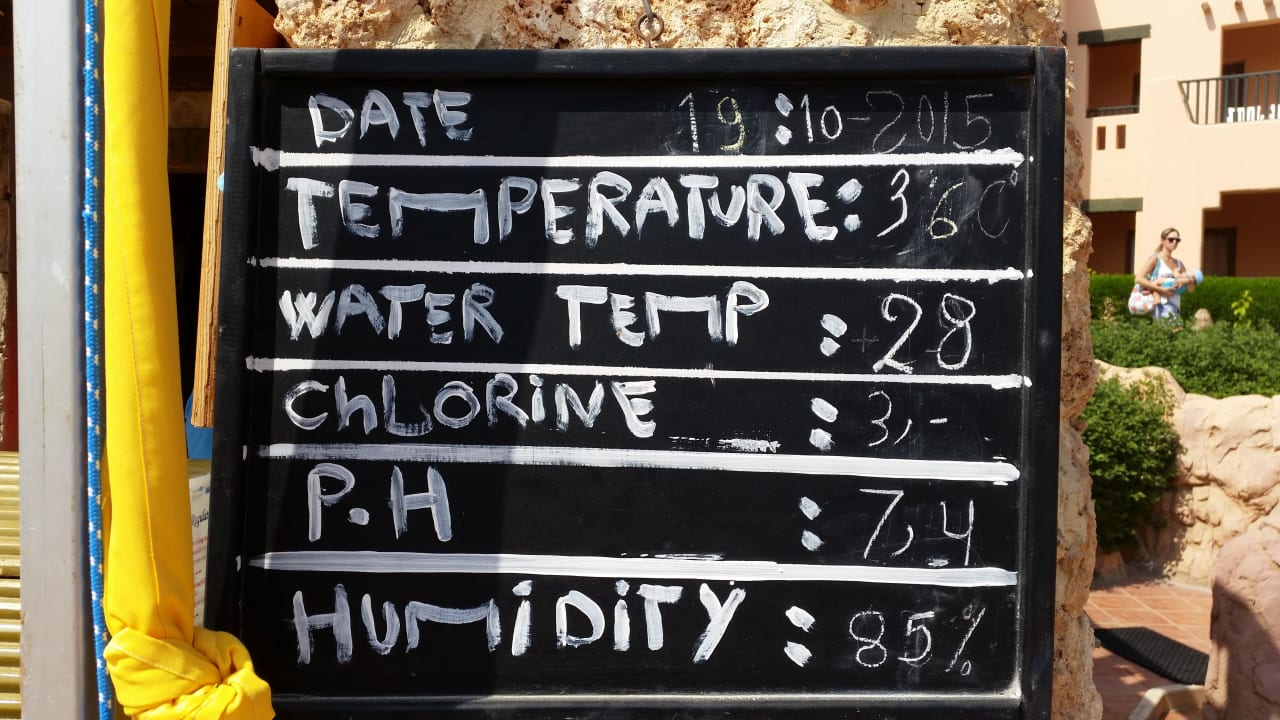 DATE 19 :10-2015
TEMPERATURE: 36C°
WATER TEMP : 28
ChLORiNE : 3,-
P.H : 7,4
HUMiDiTY : 85%